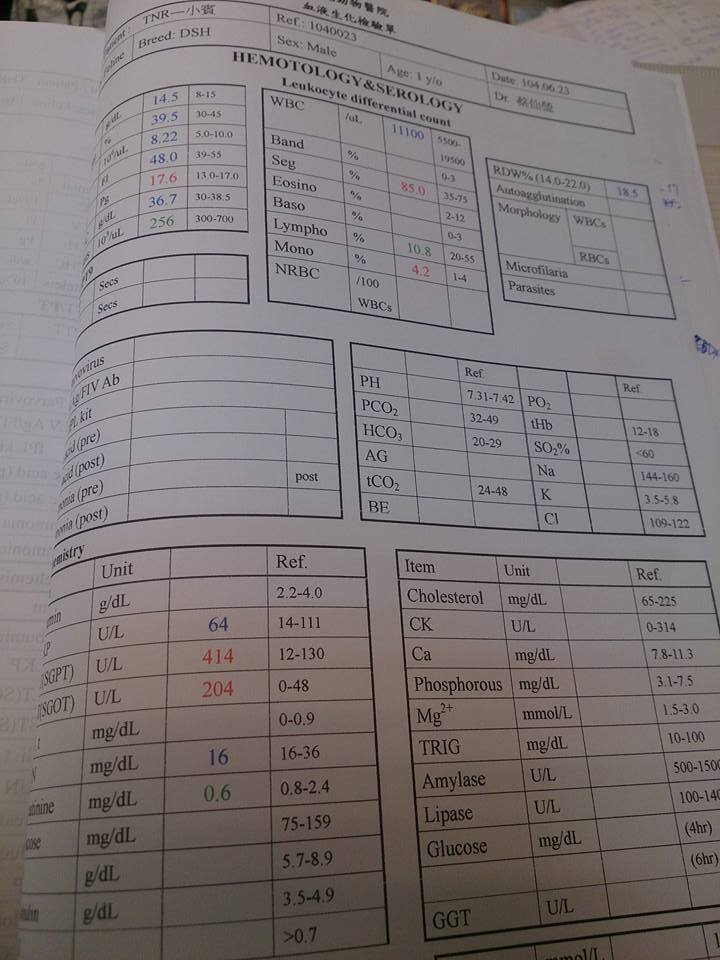 動物醫院
血液生化檢驗單
TNR—小賓
Ref.: 1040023
Date: 104.06.23
Feline
Breed: DSH
Sex: Male
Age: 1 y/o
Dr.
HEMOTOLOGY&SEROLOGY
Leukocyte differential count
g/dL 14.5 8-15
% 39.5 30-45
10⁶/uL 8.22 5.0-10.0
fl 48.0 39-55
Pg 17.6 13.0-17.0
g/dL 36.7 30-38.5
10³/uL 256 300-700
Secs
Secs
WBC /uL 11100 5500-19500
Band % 0-3
Seg % 85.0 35-75
Eosino % 2-12
Baso % 0-3
Lympho % 10.8 20-55
Mono % 4.2 1-4
NRBC /100 WBCs
RDW% (14.0-22.0) 18.5
Autoagglutination
Morphology WBCs
RBCs
Microfilaria
Parasites
ovirus
Ag/FIV Ab
PL kit
acid (pre)
acid (post)
onia (pre) post
onia (post)
Ref. Ref.
PH 7.31-7.42 PO₂
PCO₂ 32-49 tHb 12-18
HCO₃ 20-29 SO₂% <60
AG Na 144-160
tCO₂ 24-48 K 3.5-5.8
BE Cl 109-122
emistry
Unit Ref.
min g/dL 2.2-4.0
KP U/L 64 14-111
(SGPT) U/L 414 12-130
(SGOT) U/L 204 0-48
t mg/dL 0-0.9
N mg/dL 16 16-36
tinine mg/dL 0.6 0.8-2.4
cose mg/dL 75-159
g/dL 5.7-8.9
bulin g/dL 3.5-4.9
>0.7
Item Unit Ref.
Cholesterol mg/dL 65-225
CK U/L 0-314
Ca mg/dL 7.8-11.3
Phosphorous mg/dL 3.1-7.5
Mg²⁺ mmol/L 1.5-3.0
TRIG mg/dL 10-100
Amylase U/L 500-1500
Lipase U/L 100-140
Glucose mg/dL (4hr)
(6hr)
GGT U/L
mmol/L